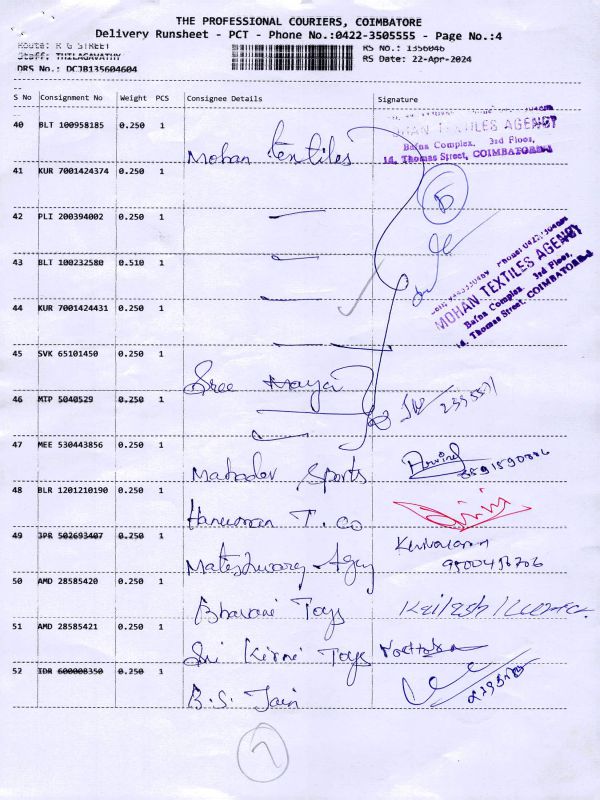 THE PROFESSIONAL COURIERS, COIMBATORE
Delivery Runsheet - PCT - Phone No.:0422-3505555 - Page No.:4
Route: R G STREET
RS No.: 1356046
Staff: THILAGAVATHY
RS Date: 22-Apr-2024
DRS No.: DCJB135604604
S No Consignment No Weight PCS Consignee Details Signature
40 BLT 100958185 0.250 1 Mohan textiles
MOHAN TEXTILES AGENCY
Bafna Complex, 3rd Floor,
14, Thomas Street, COIMBATORE-1
41 KUR 7001424374 0.250 1
42 PLI 200394002 0.250 1
43 BLT 100232580 0.510 1
MOHAN TEXTILES AGENCY
Bafna Complex, 3rd Floor,
14, Thomas Street, COIMBATORE-1
44 KUR 7001424431 0.250 1
45 SVK 65101450 0.250 1 Sree
46 MTP 5040529 0.250 1
47 MEE 530443856 0.250 1 Mahadev Sports
48 BLR 1201210190 0.250 1 Hanuman T. co
49 JPR 502693407 0.250 1 Mateshwary Agy
50 AMD 28585420 0.250 1 Bhavani Toys
51 AMD 28585421 0.250 1 Sri Kirni Toys
52 IDR 600008350 0.250 1 B.S. Jain
7